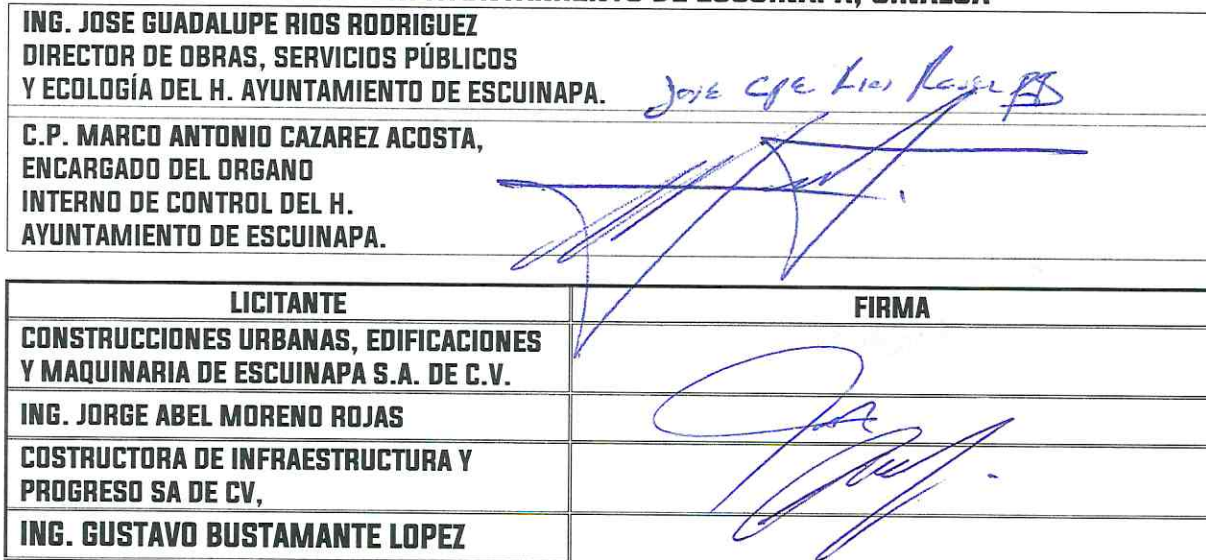 ING. JOSE GUADALUPE RIOS RODRIGUEZ
DIRECTOR DE OBRAS, SERVICIOS PÚBLICOS
Y ECOLOGÍA DEL H. AYUNTAMIENTO DE ESCUINAPA.
C.P. MARCO ANTONIO CAZAREZ ACOSTA,
ENCARGADO DEL ORGANO
INTERNO DE CONTROL DEL H.
AYUNTAMIENTO DE ESCUINAPA.
LICITANTE FIRMA
CONSTRUCCIONES URBANAS, EDIFICACIONES
Y MAQUINARIA DE ESCUINAPA S.A. DE C.V.
ING. JORGE ABEL MORENO ROJAS
COSTRUCTORA DE INFRAESTRUCTURA Y
PROGRESO SA DE CV,
ING. GUSTAVO BUSTAMANTE LOPEZ